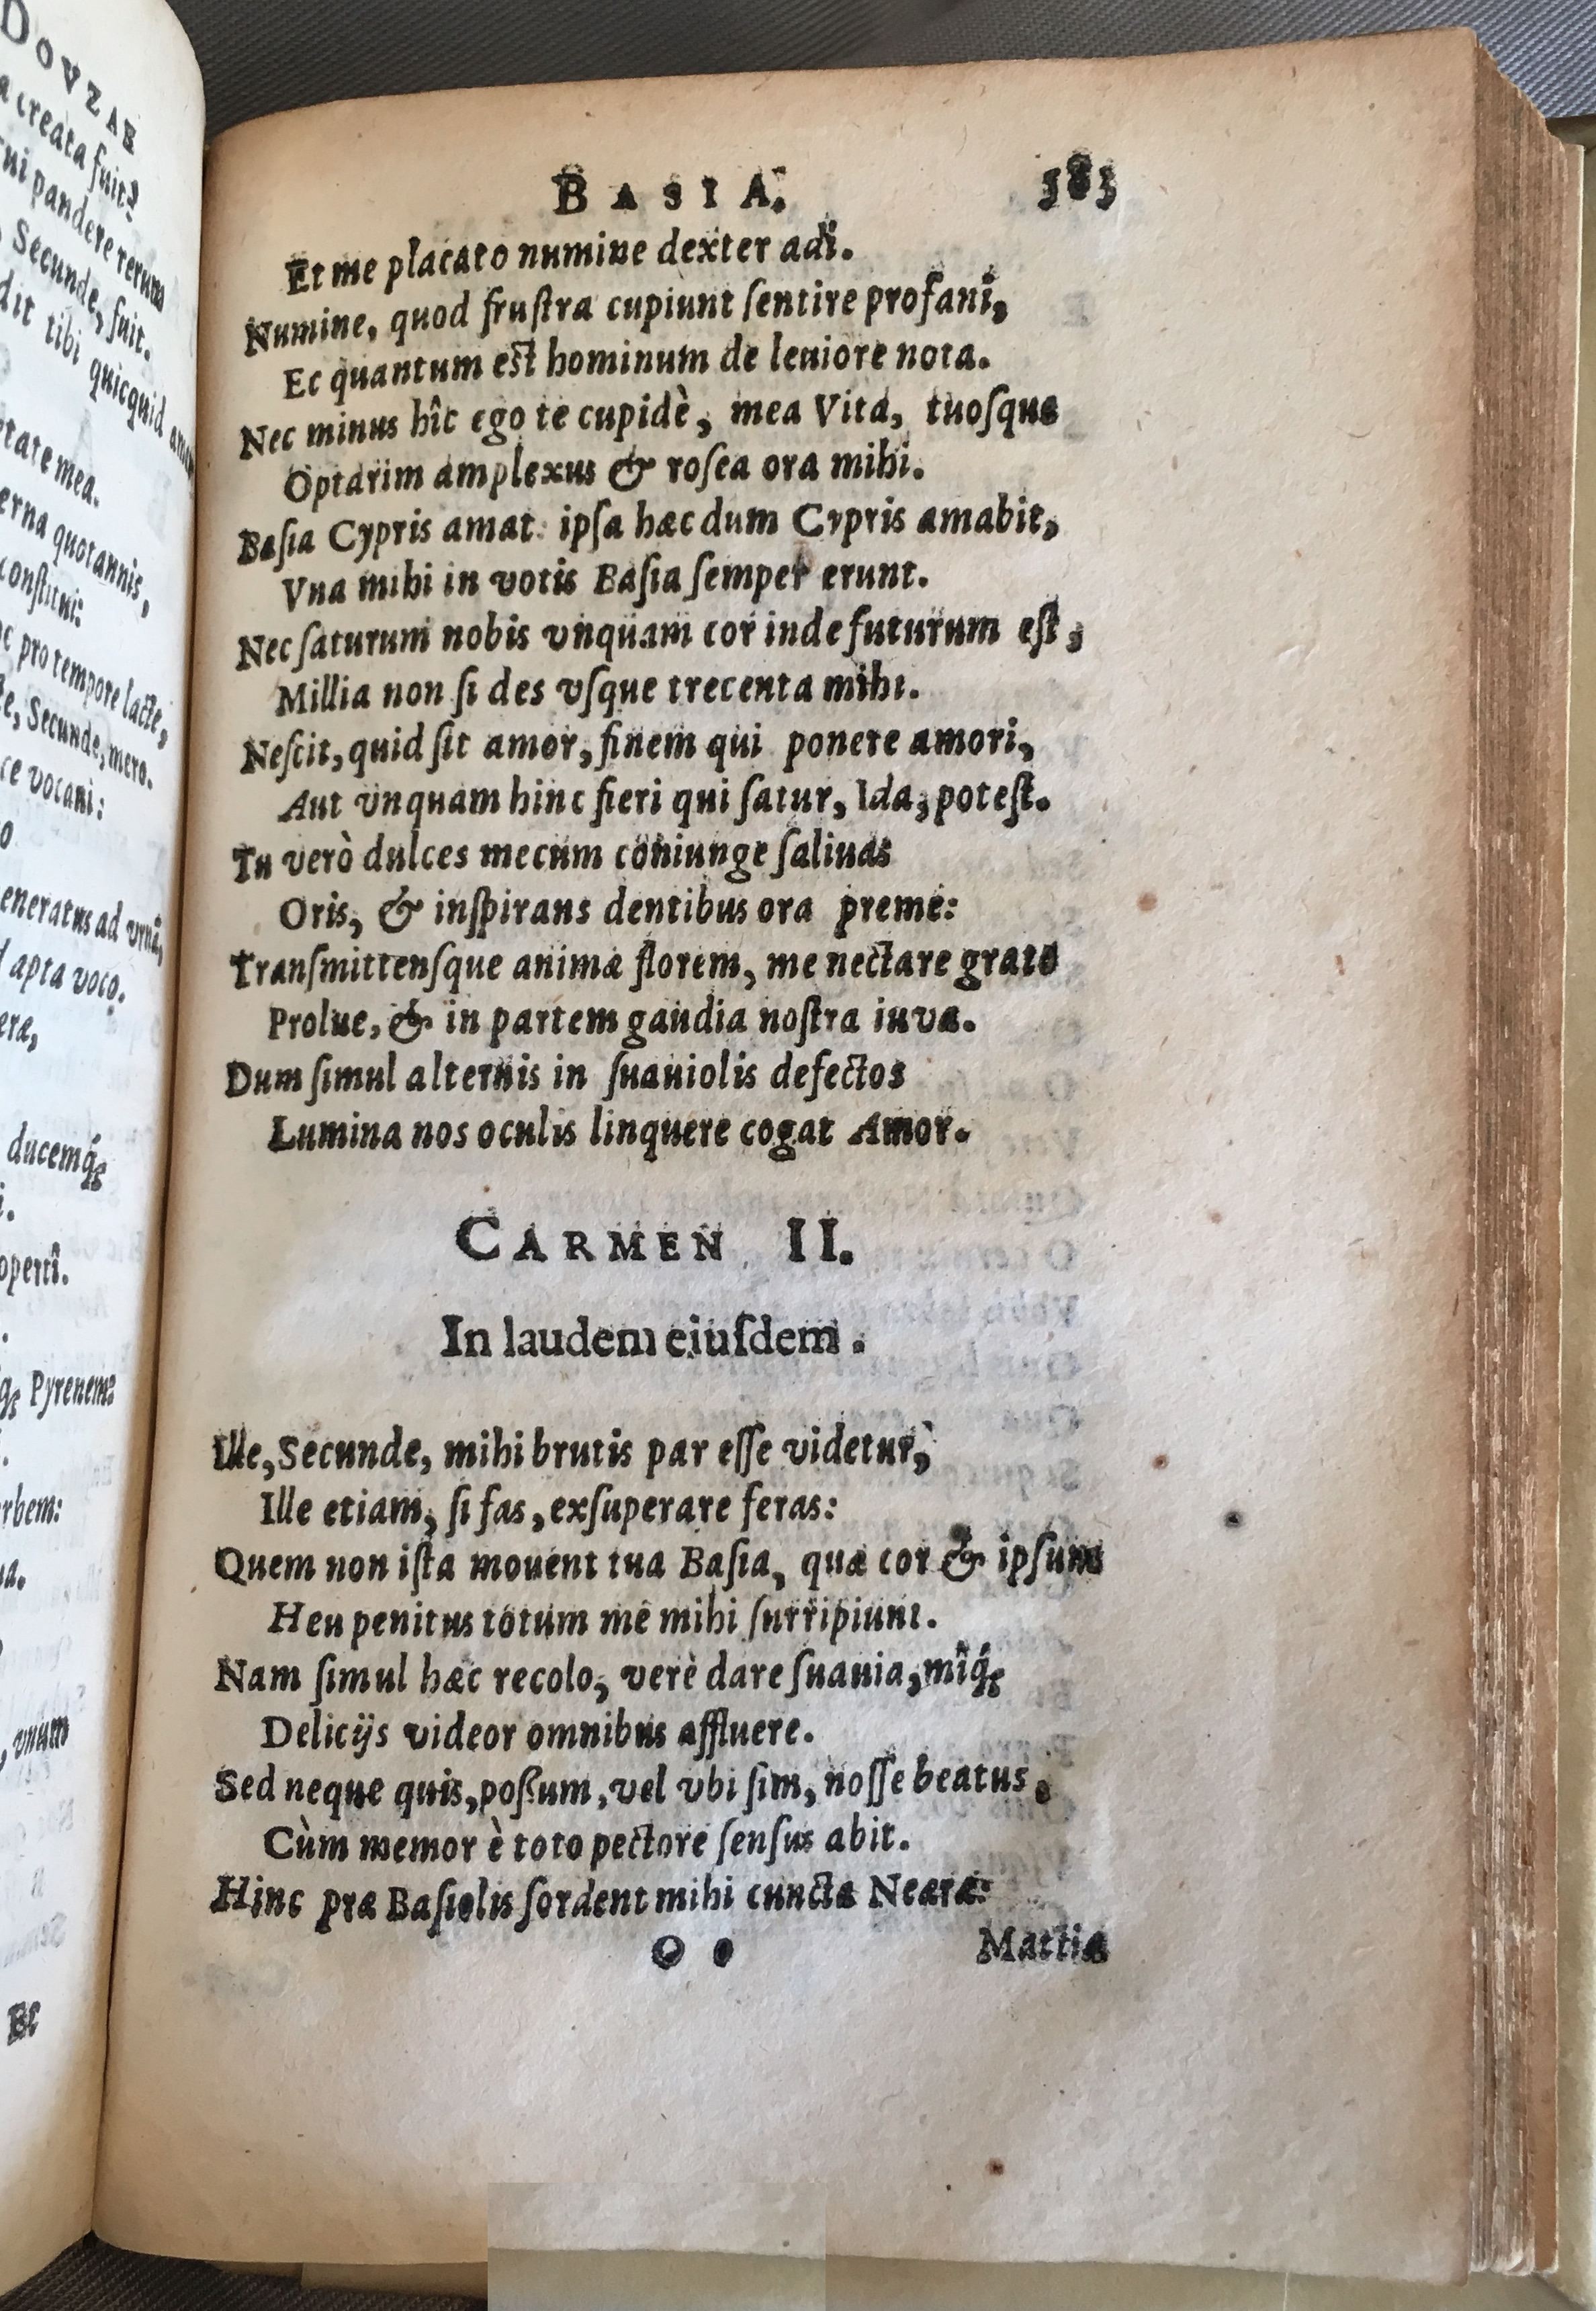 DOVZAE
creata fuit?
pandere rerum
Secunde, fuit.
dit tibi quicquid
tate mea.
erna quotannis,
constitui:
pro tempore lacte,
Secunde, mero.
ce vocani:
o
eneratus ad vrnā,
apta voco.
eræ,
ducemq́;
operti.
Pyrenem?
rbem:
, vnum
BASIA. 383
Et me placato numine dexter adi.
Numine, quod fruſtra cupiunt ſentire profani,
Ec quantum eſt hominum de leuiore nota.
Nec minus hîc ego te cupidè, mea Vita, tuoſque
Optarim amplexus & roſea ora mihi.
Baſia Cypris amat: ipſa hæc dum Cypris amabit,
Vna mihi in votis Baſia ſemper erunt.
Nec ſaturum nobis vnquam cor inde futurum eſt,
Millia non ſi des vſque trecenta mihi.
Neſcit, quid ſit amor, finem qui ponere amori,
Aut vnquam hinc fieri qui ſatur, Ida, poteſt.
Tu verò dulces mecum coniunge ſaliuas
Oris, & inſpirans dentibus ora preme:
Tranſmittenſque animæ florem, me nectare grato
Prolue, & in partem gaudia noſtra iuva.
Dum ſimul alternis in ſuauiolis defectos
Lumina nos oculis linquere cogat Amor.
CARMEN II.
In laudem eiuſdem.
Ille, Secunde, mihi brutis par eſſe videtur,
Ille etiam, ſi fas, exſuperare feras:
Quem non iſta mouent tua Baſia, quæ cor & ipſum
Heu penitus totum me mihi ſurripiunt.
Nam ſimul hæc recolo, verè dare ſuauia, mîq́;
Delicijs videor omnibus affluere.
Sed neque quis, poßum, vel vbi ſim, noſſe beatus,
Cùm memor è toto pectore ſenſus abit.
Hinc præ Baſiolis ſordent mihi cuncta Neæræ:
Mattiæ